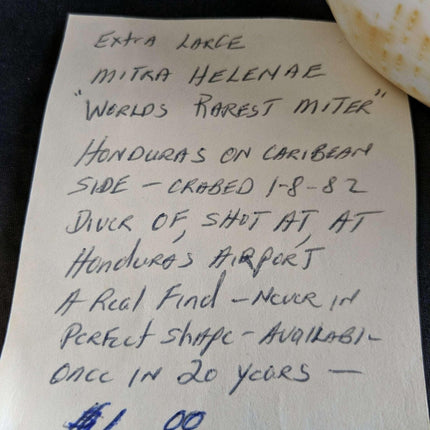 Extra Large
Mitra Helenae
"Worlds Rarest Miter"
Honduras on Caribean
Side - Crabed 1-8-82
Diver of, shot at, at
Honduras Airport
A Real Find - Never in
Perfect shape - Availabl-
once in 20 years -
$1 00